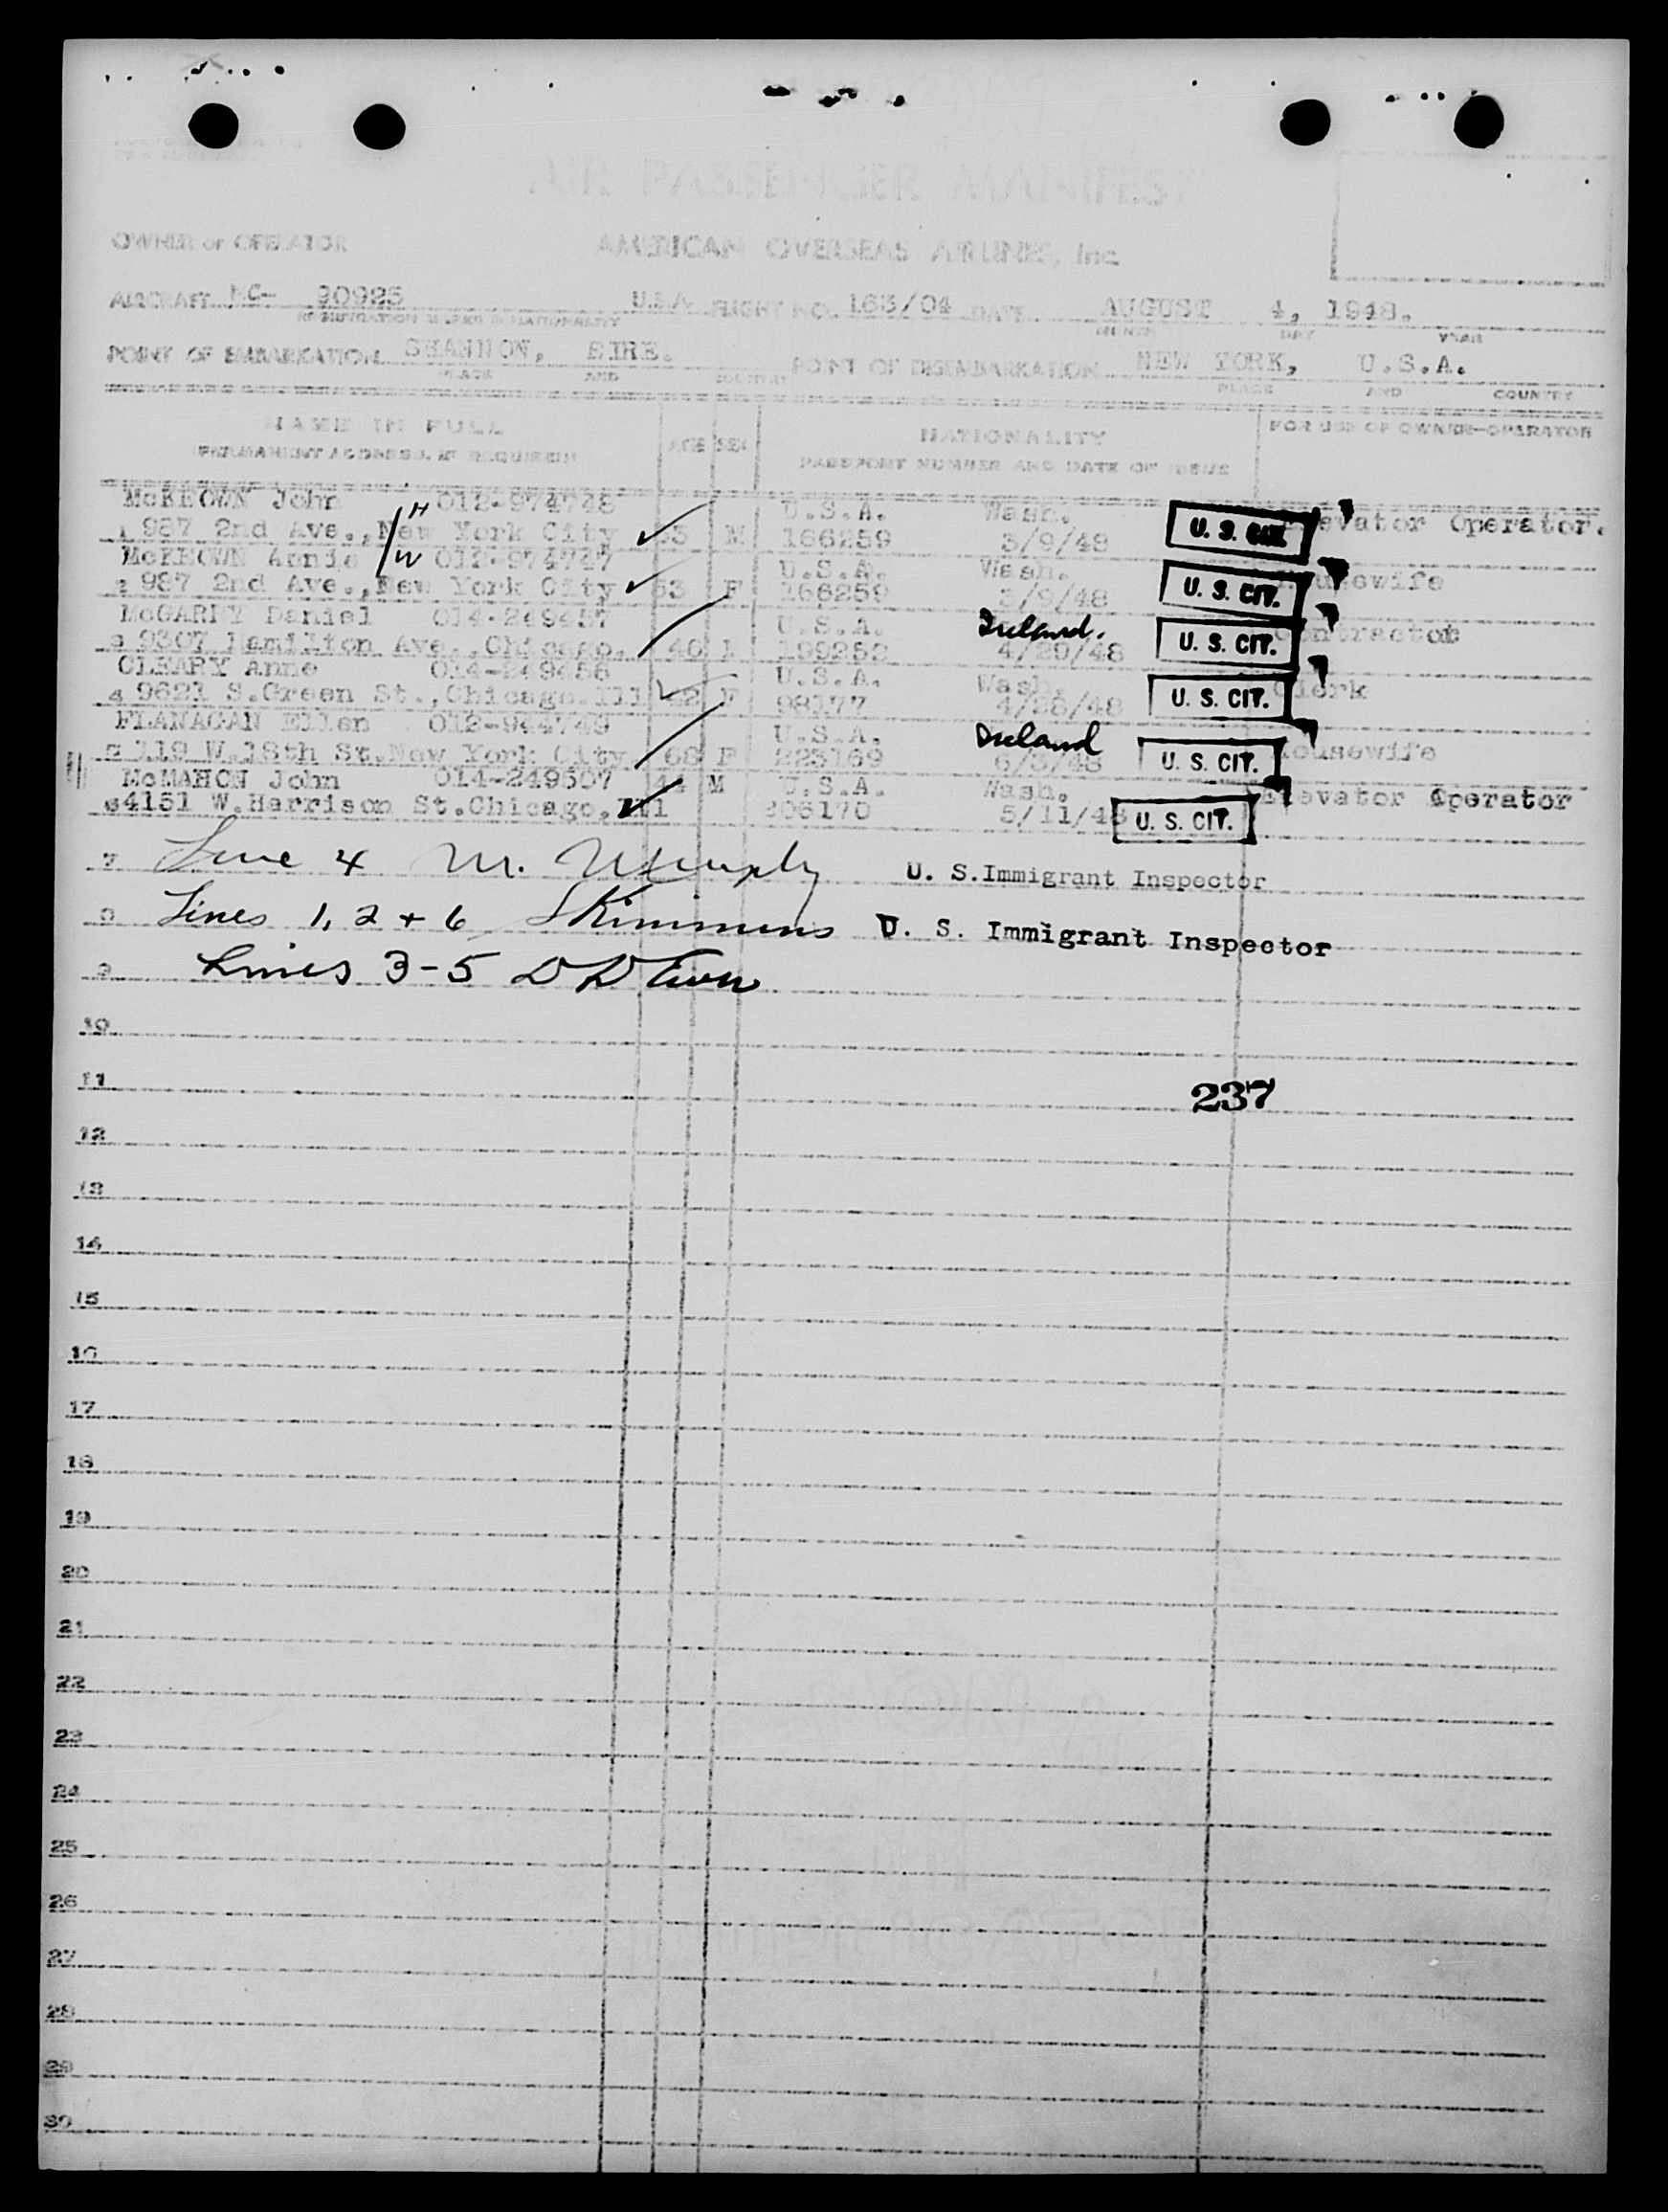 AIR PASSENGER MANIFEST
OWNER or OPERATOR AMERICAN OVERSEAS AIRLINES, Inc
AIRCRAFT NC- 90925 U.S.A FLIGHT NO. 163/04 DATE AUGUST 4, 1948.
REGISTRATION MARKS & NATIONALITY MONTH DAY YEAR
POINT OF EMBARKATION SHANNON, EIRE. POINT OF DISEMBARKATION NEW YORK, U.S.A.
PLACE AND COUNTRY PLACE AND COUNTRY
NAME IN FULL AGE SEX NATIONALITY FOR USE OF OWNER-OPERATOR
PERMANENT ADDRESS, IF REQUIRED PASSPORT NUMBER AND DATE OF ISSUE
McKEOWN John 012-974748 U.S.A. Wash.
1 987 2nd Ave., New York City M 166259 3/9/48 U. S. CIT. Elevator Operator.
H
W
McKEOWN Annie 012-974747 U.S.A. Wash.
2 987 2nd Ave., New York City 53 F 166259 3/9/48 U. S. CIT. Housewife
McGARRY Daniel 014-249457 U.S.A. Ireland.
3 9307 Hamilton Ave., Chicago. 40 4/29/48 U. S. CIT. Contractor
CLEARY Anne 014-249456 U.S.A. Wash.
4 9621 S.Green St.,Chicago.Ill F 98177 4/26/48 U. S. CIT. Clerk
FLANAGAN Ellen 012-944749 U.S.A. Ireland
5 119 W.18th St.New York City 68 F 223169 6/3/48 U. S. CIT. Housewife
McMAHON John 014-249507 44 M U.S.A. Wash.
6 4151 W.Harrison St.Chicago, Ill 206170 5/11/48 U. S. CIT. Elevator Operator
7 Line 4 M. Murphy U. S.Immigrant Inspector
8 Lines 1, 2 + 6 U. S. Immigrant Inspector
9 Lines 3-5
10
11 237
12
13
14
15
16
17
18
19
20
21
22
23
24
25
26
27
28
29
30